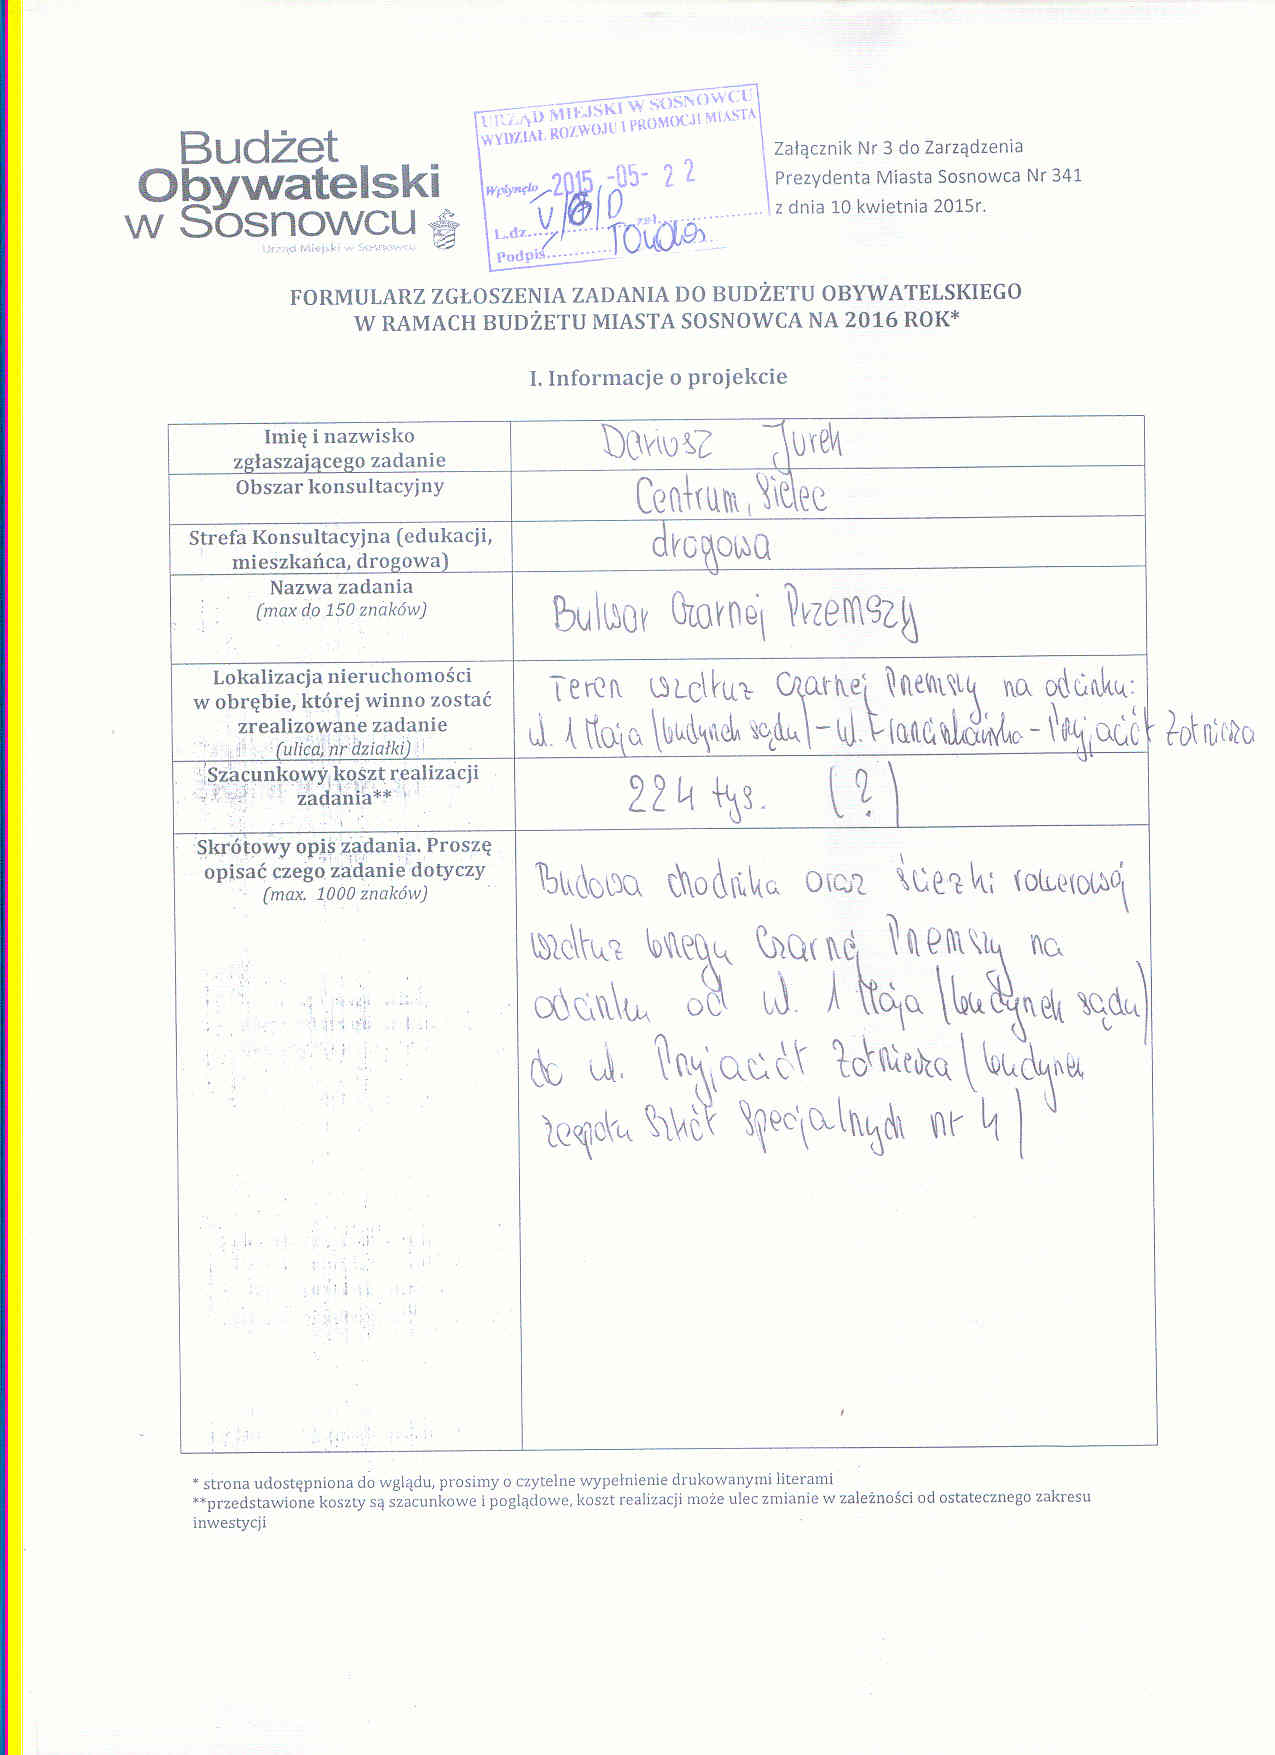 Budżet
Obywatelski
w Sosnowcu
Urząd Miejski w Sosnowcu
URZĄD MIEJSKI W SOSNOWCU
WYDZIAŁ ROZWOJU I PROMOCJI MIASTA
Wpłynęło 2015 -05- 2 2
L.dz. zał.
Podpis
Załącznik Nr 3 do Zarządzenia
Prezydenta Miasta Sosnowca Nr 341
z dnia 10 kwietnia 2015r.
FORMULARZ ZGŁOSZENIA ZADANIA DO BUDŻETU OBYWATELSKIEGO
W RAMACH BUDŻETU MIASTA SOSNOWCA NA 2016 ROK*
I. Informacje o projekcie
Imię i nazwisko
zgłaszającego zadanie
Dariusz Jurek
Obszar konsultacyjny
Centrum, Sielec
Strefa Konsultacyjna (edukacji,
mieszkańca, drogowa)
drogowa
Nazwa zadania
(max do 150 znaków)
Bulwar Czarnej Przemszy
Lokalizacja nieruchomości
w obrębie, której winno zostać
zrealizowane zadanie
(ulica, nr działki)
Teren wzdłuż Czarnej Przemszy na odcinku:
ul. 1 Maja (budynek sądu) - ul. Franciszkańska - Przyjaciół Żołnierza
Szacunkowy koszt realizacji
zadania**
224 tys. (?)
Skrótowy opis zadania. Proszę
opisać czego zadanie dotyczy
(max. 1000 znaków)
Budowa chodnika oraz ścieżki rowerowej
wzdłuż brzegu Czarnej Przemszy na
odcinku od ul. 1 Maja (budynek sądu)
do ul. Przyjaciół Żołnierza (budynek
zespołu Szkół Specjalnych nr 4)
* strona udostępniona do wglądu, prosimy o czytelne wypełnienie drukowanymi literami
**przedstawione koszty są szacunkowe i poglądowe, koszt realizacji może ulec zmianie w zależności od ostatecznego zakresu
inwestycji